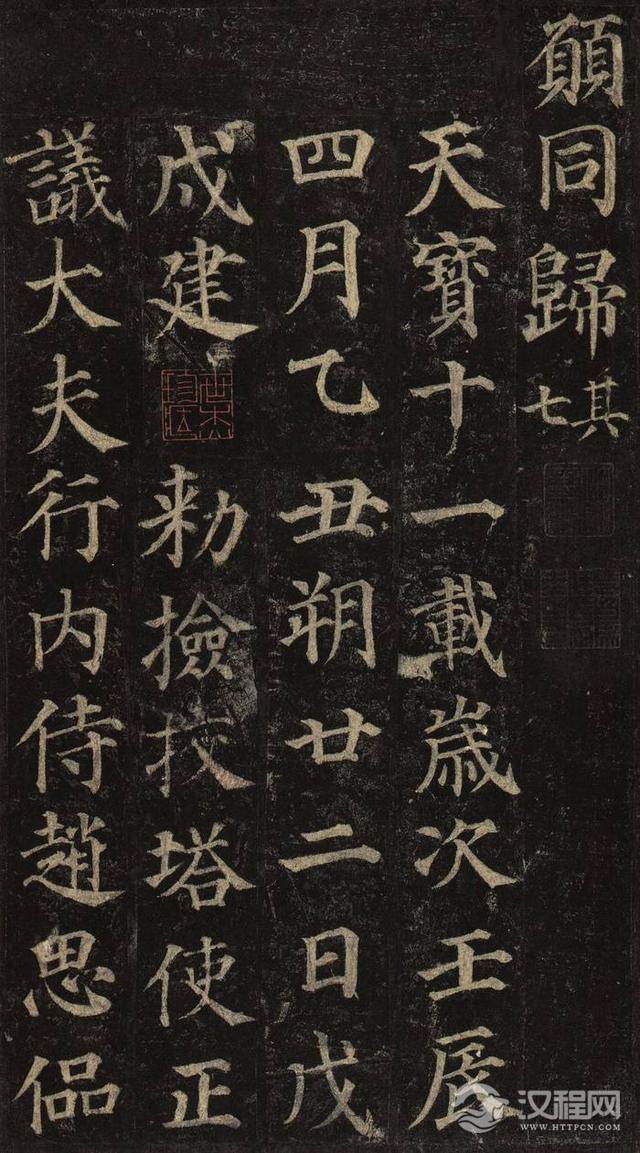 願同歸其七
天寶十一載歲次壬辰
四月乙丑朔廿二日戊
戌建 勅撿挍塔使正
議大夫行内侍趙思侃
汉程网
WWW.HTTPCN.COM